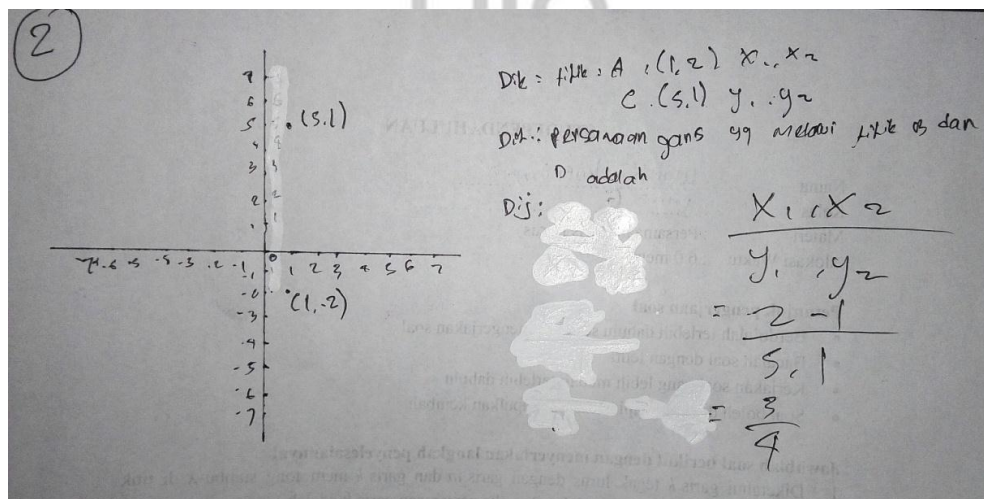 2
7
6
5 .(5,1)
4
3
2
1
-7 -6 -5 -4 -3 -2 -1 0 1 2 3 4 5 6 7
-1
-2 .(1,-2)
-3
-4
-5
-6
-7
Dik = titik : A . (1,2) X1, X2
C . (5,1) y1 . y2
Dit : persamaan garis yg melalui titik B dan
D adalah
Dij :
X1, X2
y1, y2
= -2 -1
5, 1
= 3
4